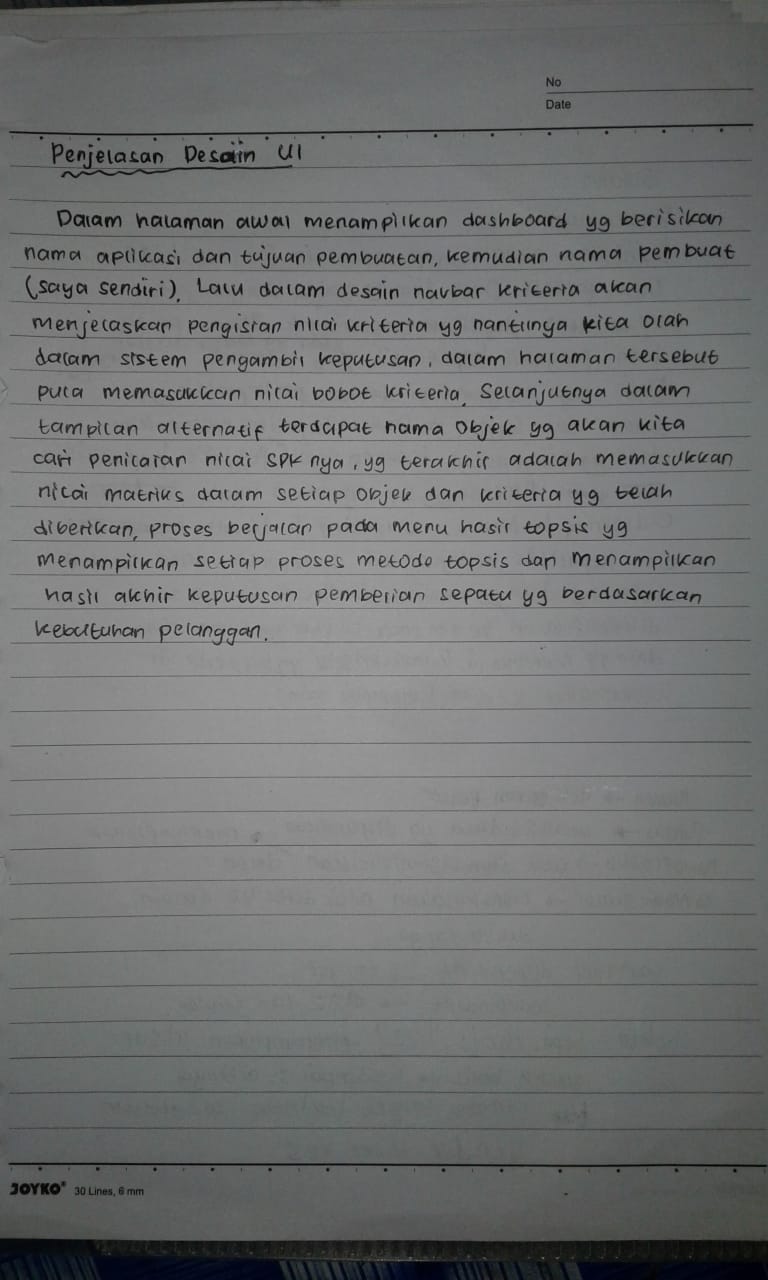 No
Date
Penjelasan Desain UI
Dalam halaman awal menampilkan dashboard yg berisikan
nama aplikasi dan tujuan pembuatan, kemudian nama pembuat
(saya sendiri). Lalu dalam desain navbar kriteria akan
menjelaskan pengisian nilai kriteria yg nantinya kita olah
dalam sistem pengambil keputusan, dalam halaman tersebut
pula memasukkan nilai bobot kriteria. Selanjutnya dalam
tampilan alternatif terdapat nama objek yg akan kita
cari penilaian nilai SPK nya, yg terakhir adalah memasukkan
nilai matriks dalam setiap objek dan kriteria yg telah
diberikan, proses berjalan pada menu hasil topsis yg
menampilkan setiap proses metode topsis dan menampilkan
hasil akhir keputusan pemberian sepatu yg berdasarkan
kebutuhan pelanggan.
JOYKO® 30 Lines, 6 mm